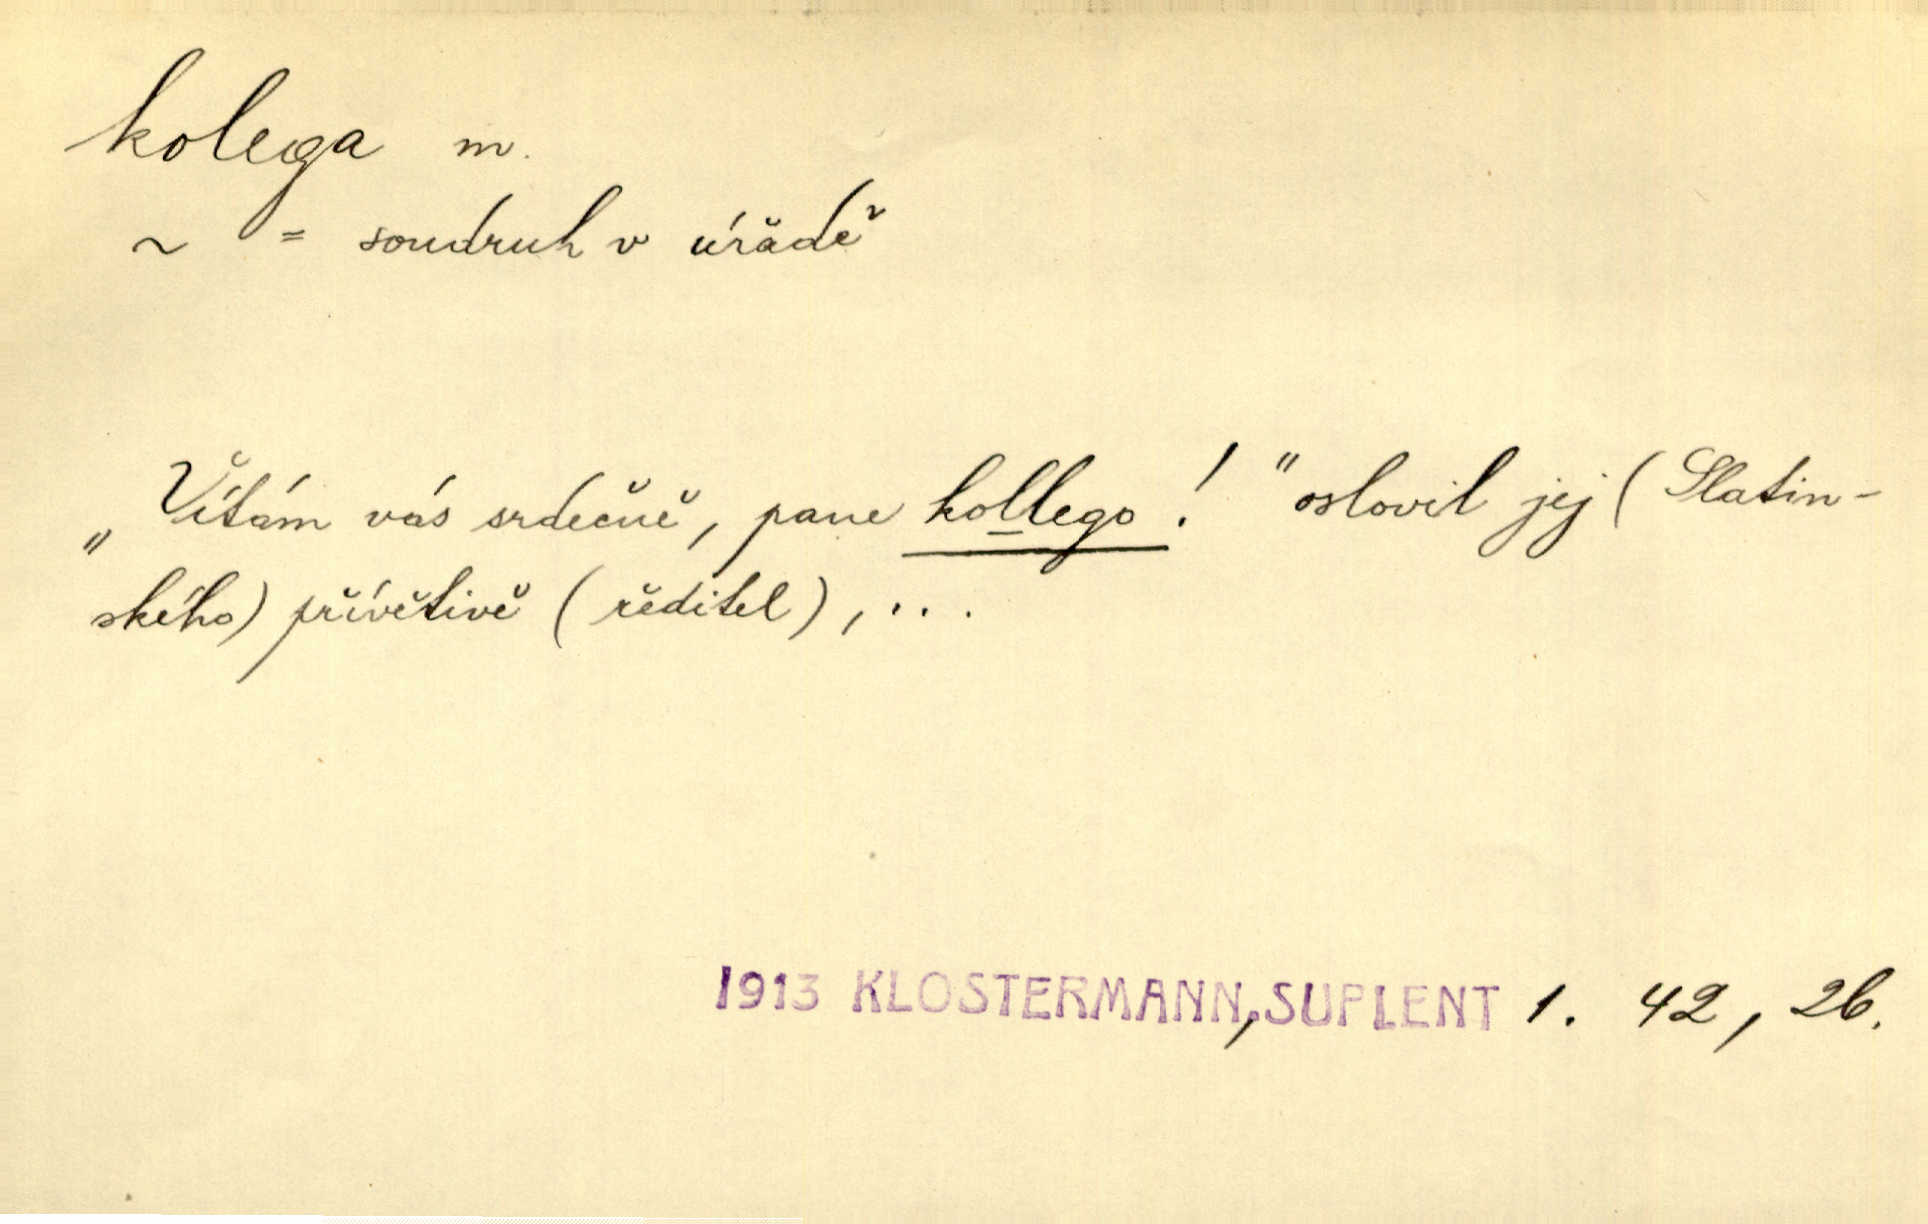 kolega m.
~ = soudruh v úřadě
„Vítám vás srdečně, pane kollego!" oslovil jej (Slatin-
ského) přívětivě (ředitel), ...
1913 KLOSTERMANN, SUPLENT 1. 42, 26.